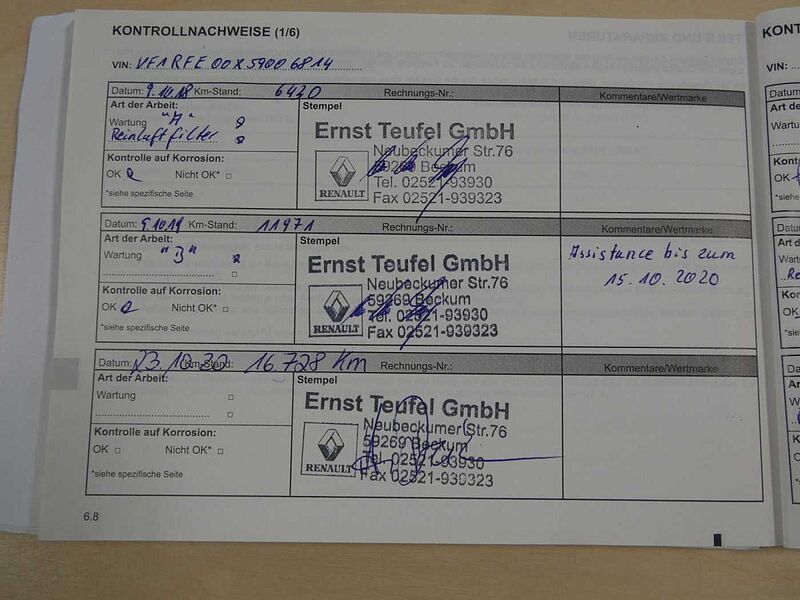 KONTROLLNACHWEISE (1/6)
VIN: VF1RFE00X59006814
Datum: 9.10.18 Km-Stand: 6420 Rechnungs-Nr.: Kommentare/Wertmarke
Art der Arbeit: Stempel
Wartung "A"
Reinluftfilter
Kontrolle auf Korrosion:
OK Nicht OK*
*siehe spezifische Seite
Ernst Teufel GmbH
Neubeckumer Str.76
59269 Beckum
Tel. 02521-93930
Fax 02521-939323
RENAULT
Datum: 9.10.19 Km-Stand: 11971 Rechnungs-Nr.: Kommentare/Wertmarke
Art der Arbeit: Stempel
Wartung "B"
Kontrolle auf Korrosion:
OK Nicht OK*
*siehe spezifische Seite
Ernst Teufel GmbH
Neubeckumer Str.76
59269 Beckum
Tel. 02521-93930
Fax 02521-939323
RENAULT
Assistance bis zum
15.10.2020
Datum: 23.10.20 Km-Stand: 16.728 Km Rechnungs-Nr.: Kommentare/Wertmarke
Art der Arbeit: Stempel
Wartung
Kontrolle auf Korrosion:
OK Nicht OK*
*siehe spezifische Seite
Ernst Teufel GmbH
Neubeckumer Str.76
59269 Beckum
Tel. 02521-93930
Fax 02521-939323
RENAULT
6.8
KONT
VIN: